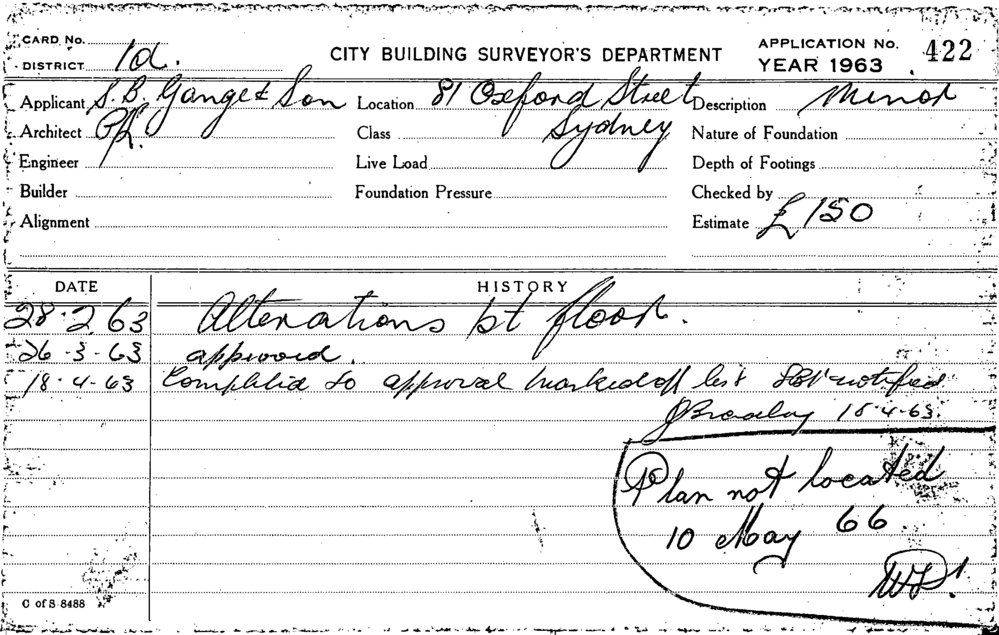 CARD No.
DISTRICT 1d.
CITY BUILDING SURVEYOR'S DEPARTMENT
APPLICATION No. 422
YEAR 1963
Applicant S. B. Gange & Son Location 81 Oxford Street Description Minor
Architect Class Sydney Nature of Foundation
Engineer Live Load Depth of Footings
Builder Foundation Pressure Checked by
Alignment Estimate £150
DATE HISTORY
28.2.63 Alterations 1st floor.
26-3-63 approved.
18-4-63 Completed to approval marked off list notified
18-4-63.
Plan not located
10 May 66
C of S 8488